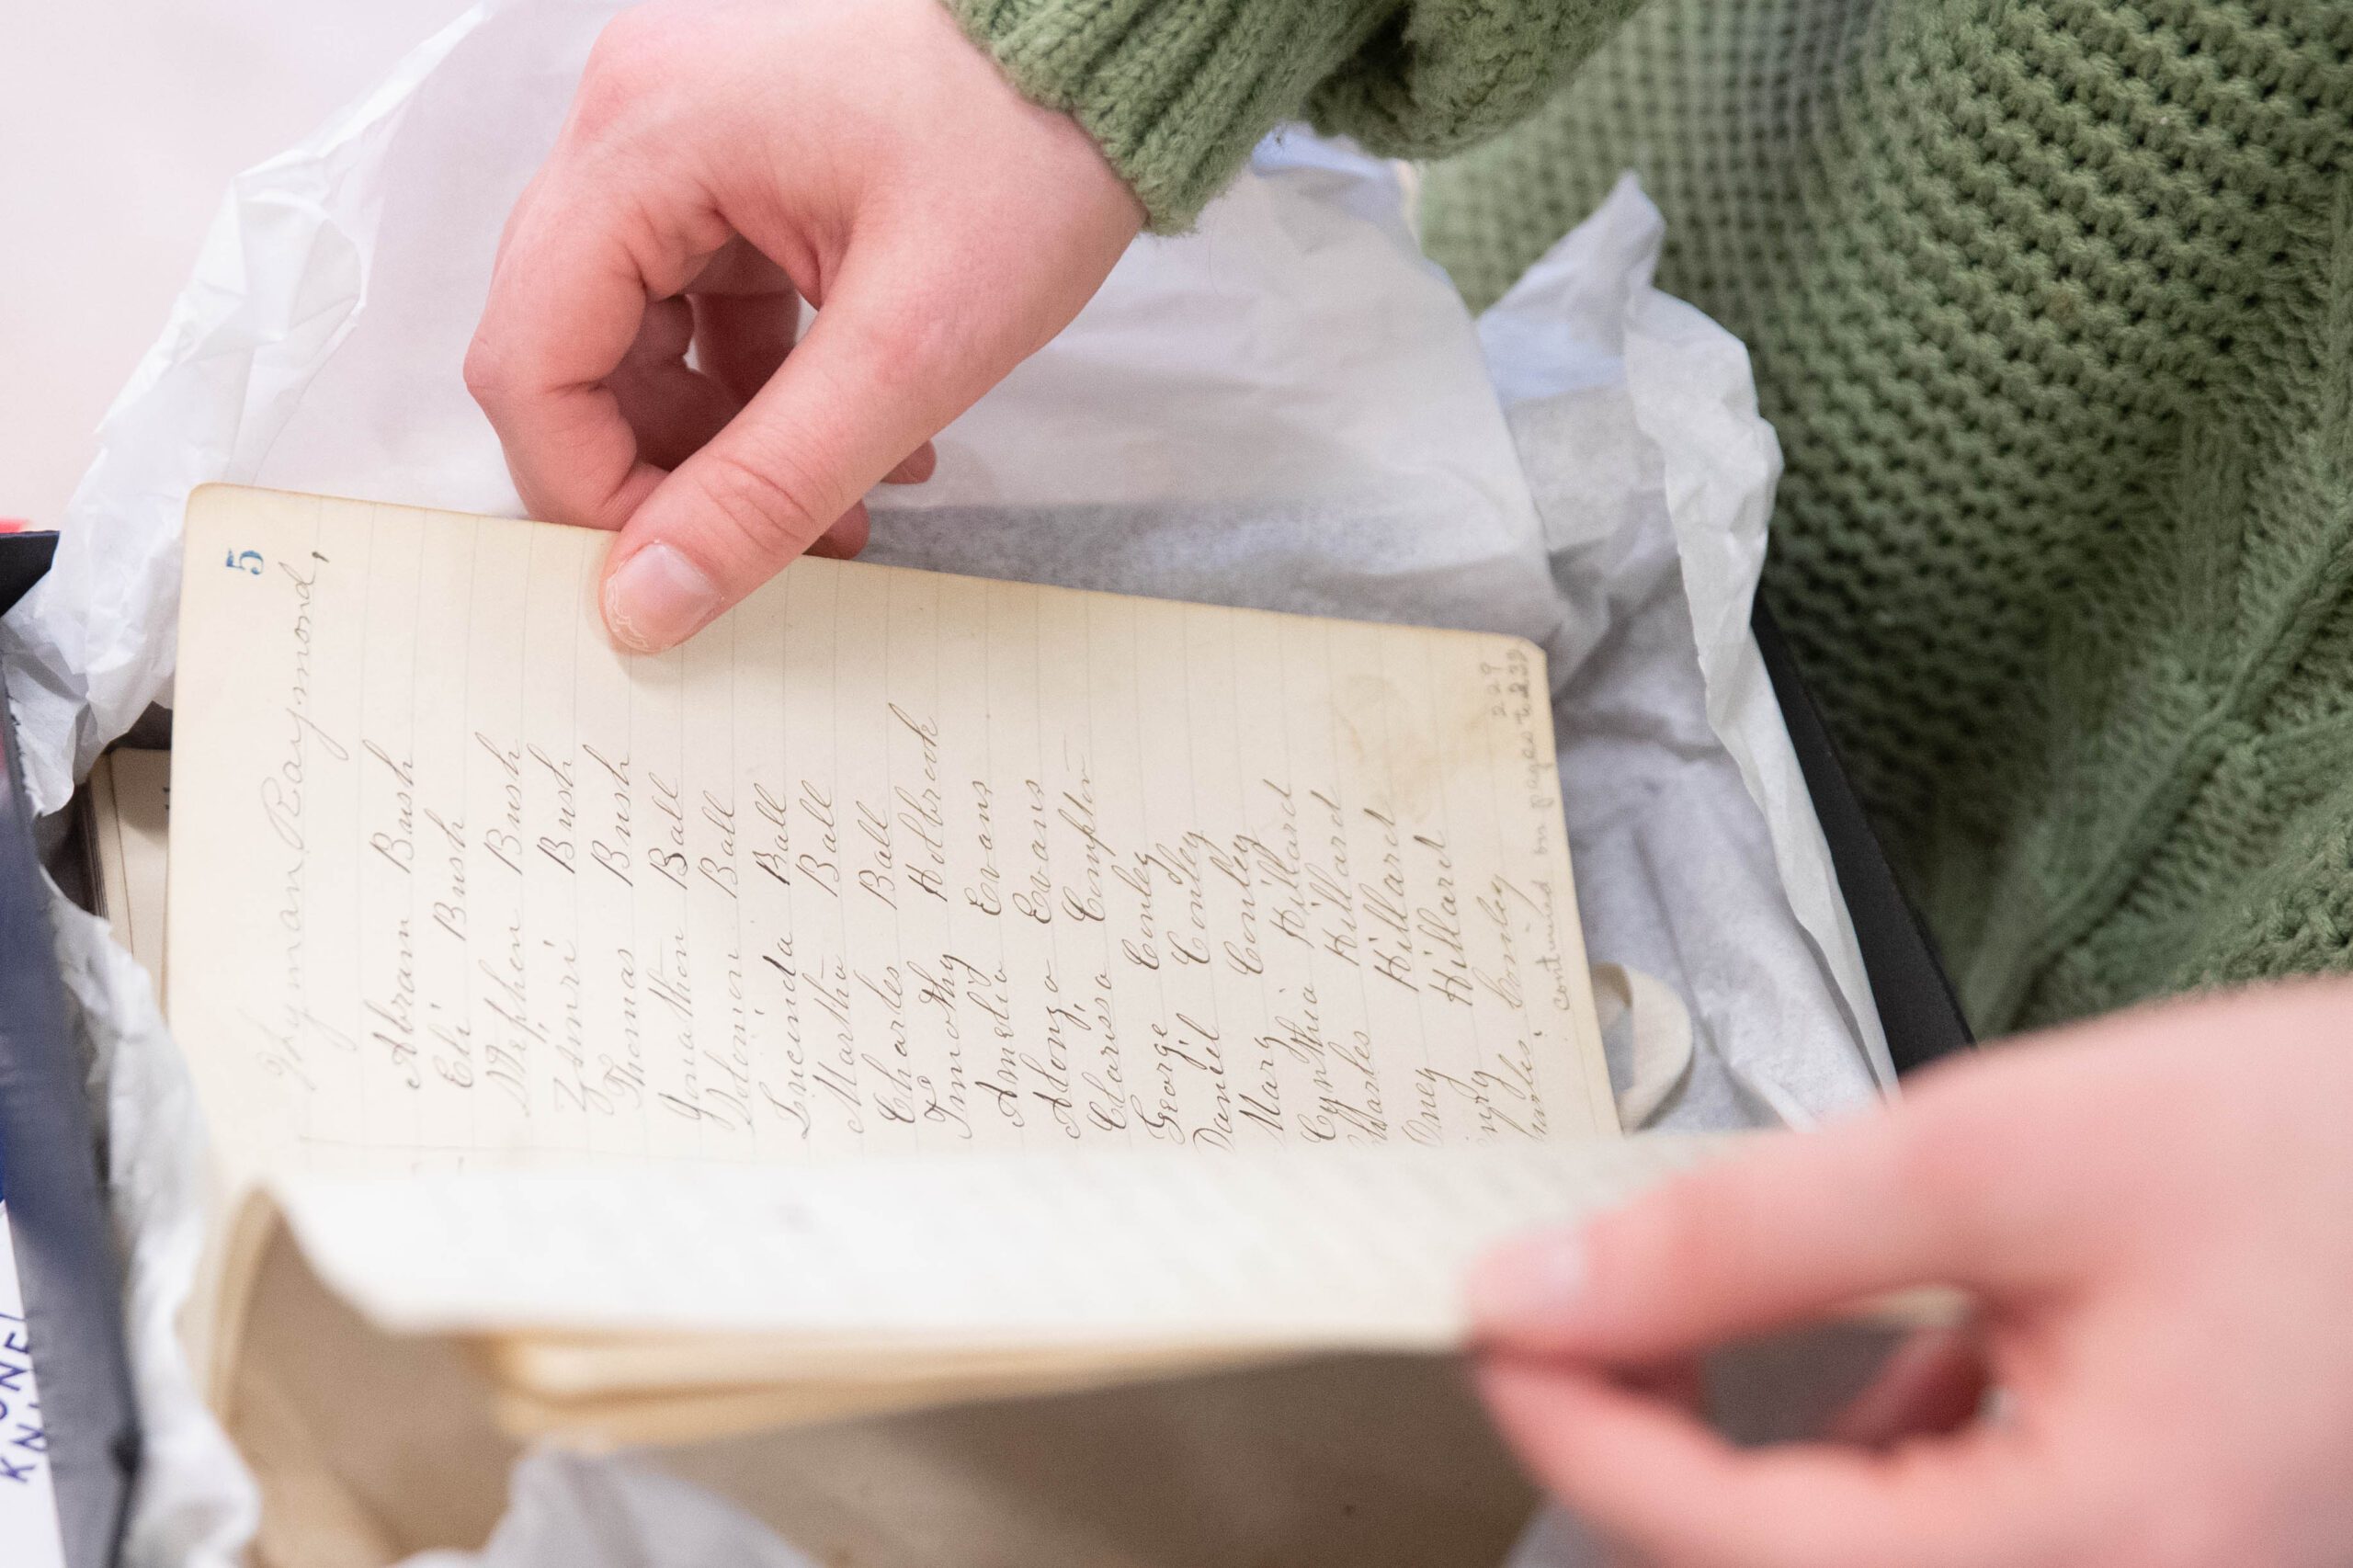 5
Lyman Raymond,
Abram Bush
Eli Bush
Stephen Bush
Zimri Bush
Thomas Bush
Jonathon Ball
Ball
Lucinda Ball
Martha Ball
Charles Ball
Timothy Holbrook
Amelia Evans
Adongo Evans
Clarissa Compton
George Conley
Daniel Conley
Mary Conley
Cynthia Hillard
Charles Hillard
Oney Hillard
Hillard
Conley
continued on pages 229 & 239